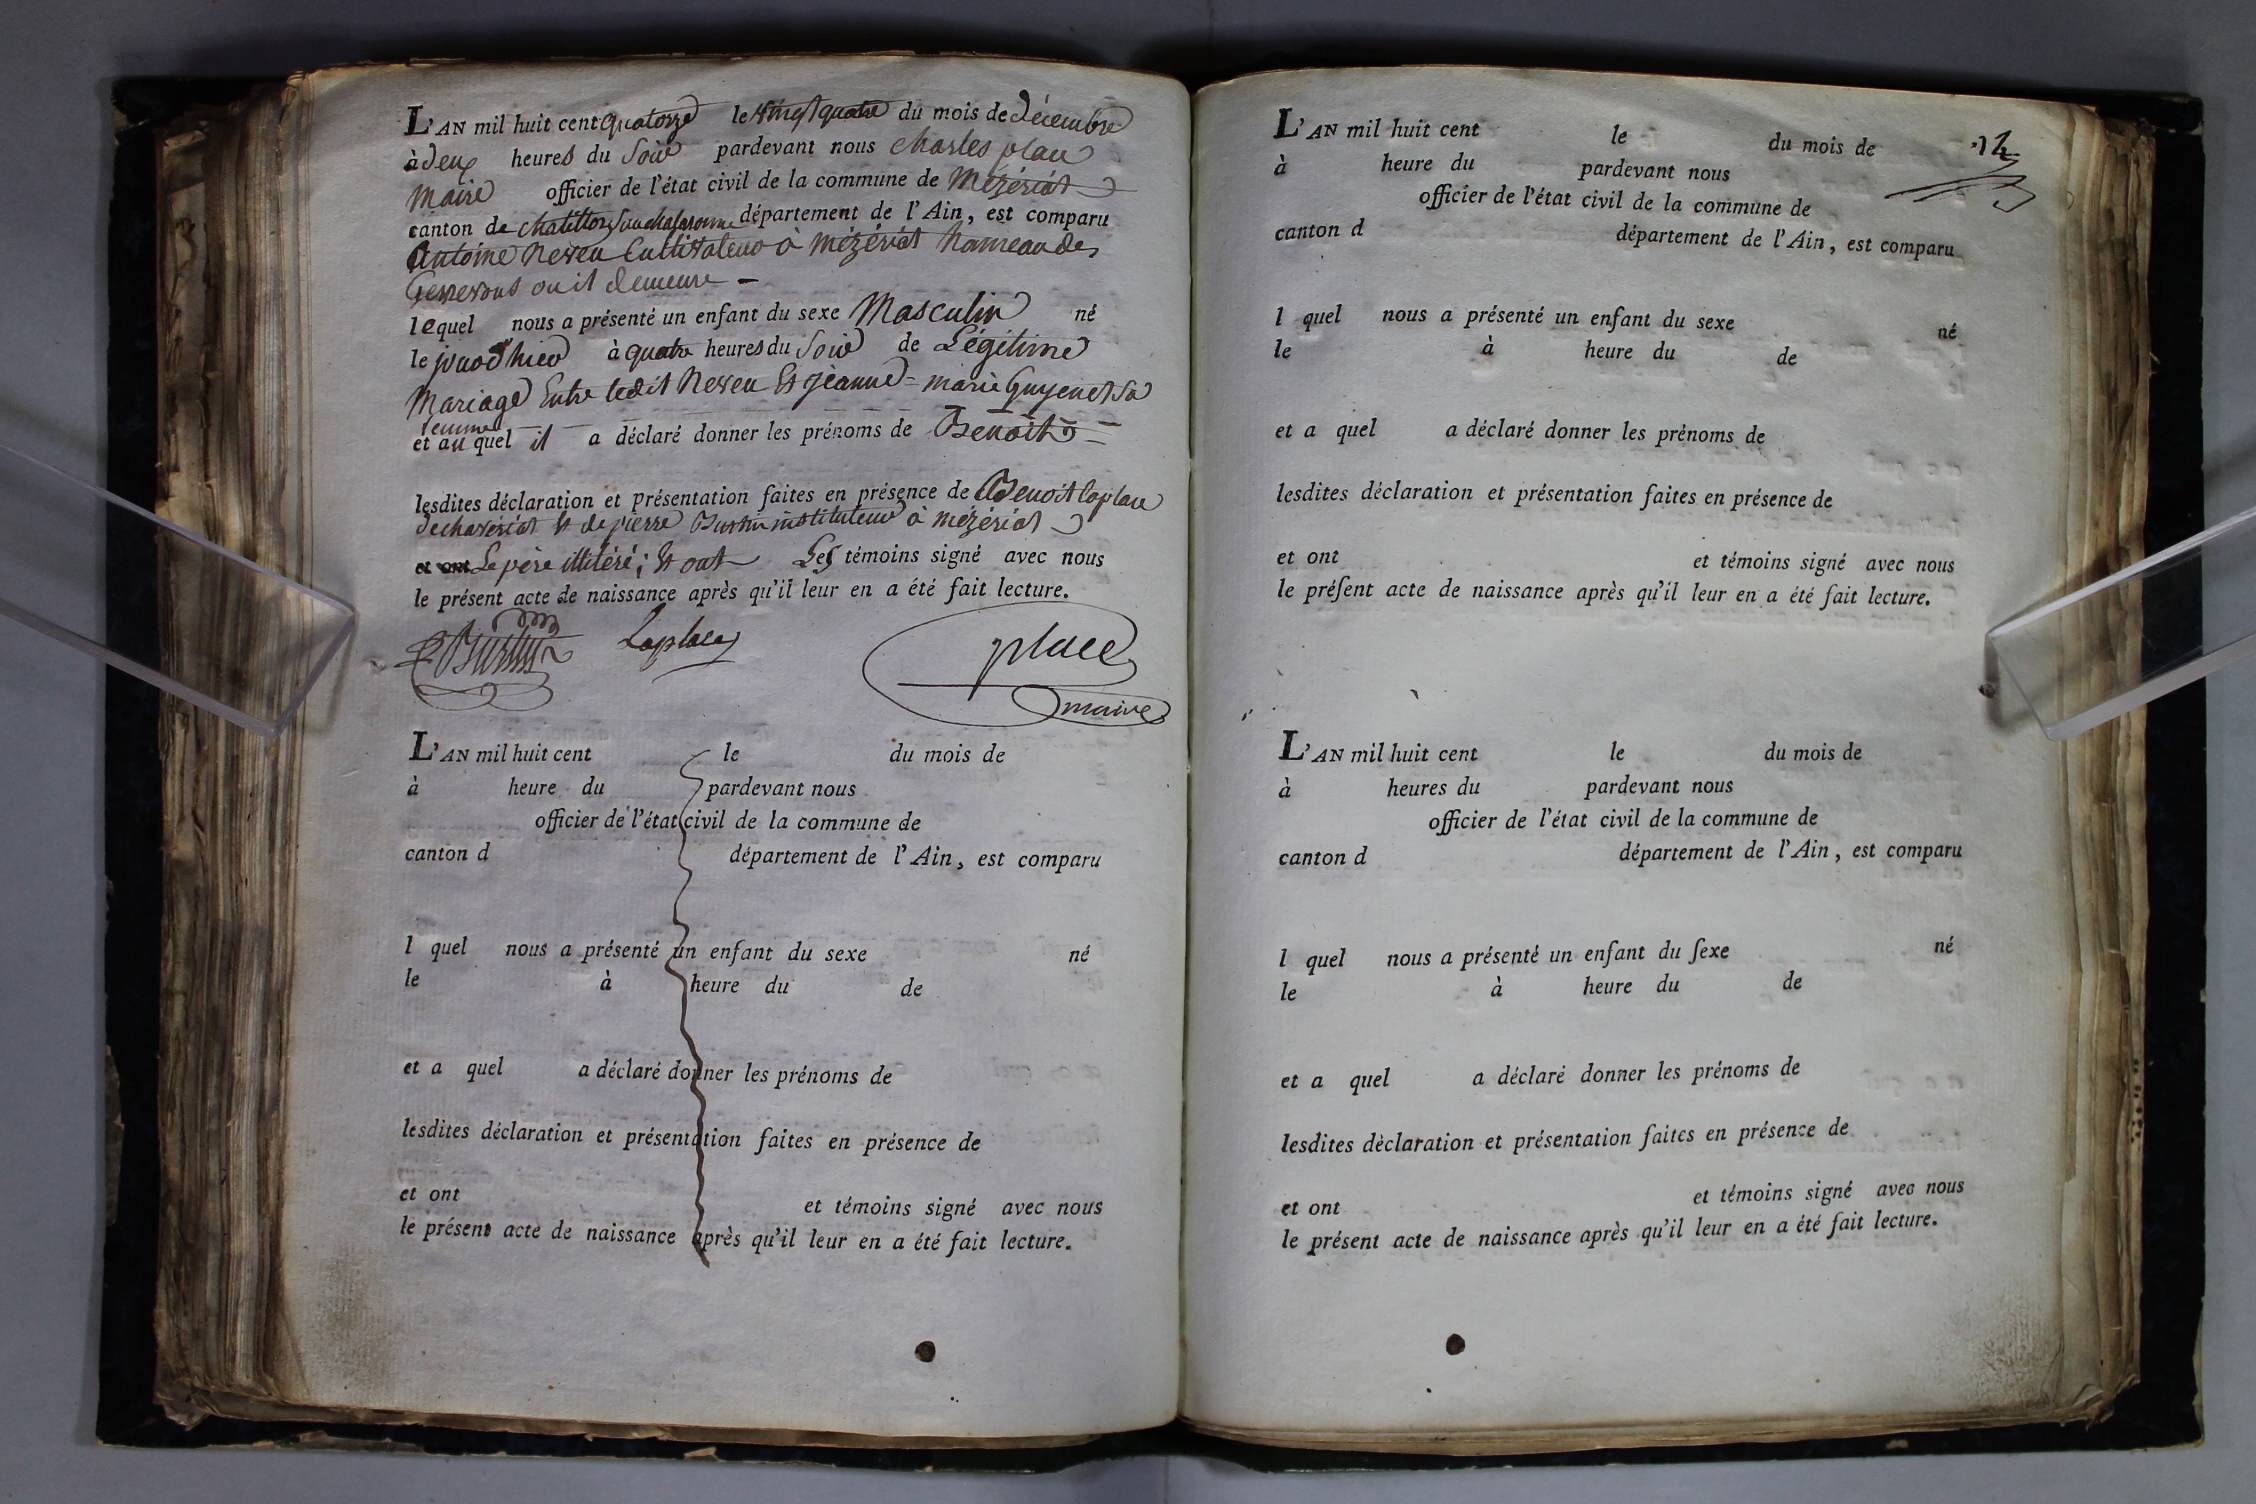 L'AN mil huit cent quatorze le vingt quatre du mois de décembre
à deux heures du soir pardevant nous charles place
maire officier de l'état civil de la commune de Mézériat
canton de chatillon sur chalaronne département de l'Ain, est comparu
Antoine Neveu Cultivateur à Mézériat hameau des
où il demeure
lequel nous a présenté un enfant du sexe Masculin né
le jour d'hier à quatre heures du soir de Légitime
Mariage Entre ledit Neveu Et jeanne-marie Guyenet sa
femme
et au quel il a déclaré donner les prénoms de Benoit
lesdites déclaration et présentation faites en présence de Benoit laplace
de chaveriat et de pierre Burtin instituteur à mézériat
et ont Le père illitéré; Et ont Les témoins signé avec nous
le présent acte de naissance après qu'il leur en a été fait lecture.
Burtin Laplace place
maire
L'AN mil huit cent le du mois de
à heure du pardevant nous
officier de l'état civil de la commune de
canton d département de l'Ain, est comparu
l quel nous a présenté un enfant du sexe né
le à heure du de
et a quel a déclaré donner les prénoms de
lesdites déclaration et présentation faites en présence de
et ont et témoins signé avec nous
le présent acte de naissance après qu'il leur en a été fait lecture.
12
L'AN mil huit cent le du mois de
à heure du pardevant nous
officier de l'état civil de la commune de
canton d département de l'Ain, est comparu
l quel nous a présenté un enfant du sexe né
le à heure du de
et a quel a déclaré donner les prénoms de
lesdites déclaration et présentation faites en présence de
et ont et témoins signé avec nous
le préſent acte de naissance après qu'il leur en a été fait lecture.
L'AN mil huit cent le du mois de
à heures du pardevant nous
officier de l'état civil de la commune de
canton d département de l'Ain, est comparu
l quel nous a présenté un enfant du ſexe né
le à heure du de
et a quel a déclaré donner les prénoms de
lesdites dèclaration et présentation faites en présence de
et ont et témoins signé avec nous
le présent acte de naissance après qu'il leur en a été fait lecture.